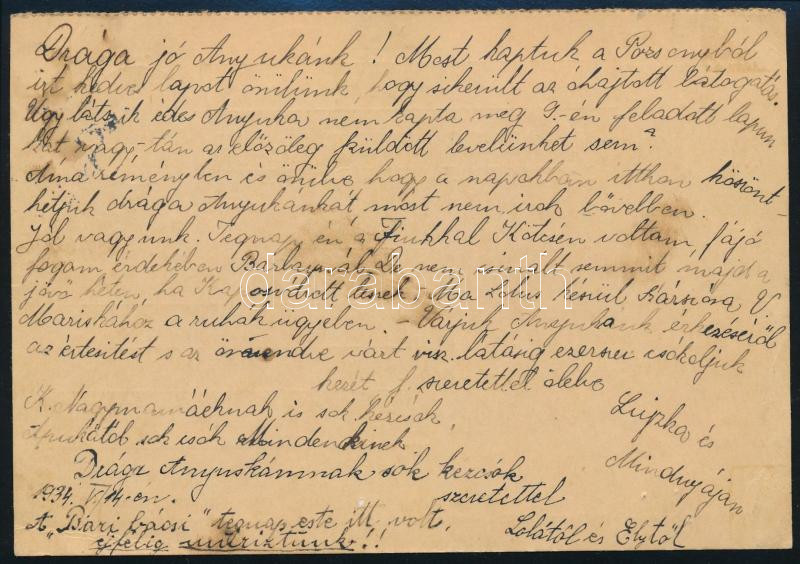 Drága jó Anyukánk! Most kaptuk a Pozsonyból
irt kedves lapot örülünk, hogy sikerült az óhajtott látogatás.
Ugy látszik édes Anyuka nem kapta meg 9.-én feladott lapun
kat vagy-tán az előzőleg küldött levelünket sem?
Ama reményben és örülve hogy a napokban itthon köszönt-
hetjük drága Anyukánkat most nem irok bővebben.
Jól vagyunk. Tegnap én a Finkkal Kötcsén voltam, fájó
fogam érdekében Barlaynál. De nem csinált semmit majd a
jövő héten, ha Kaposvárott leszek. Ma Lolus készül
Mariskához a ruhák ügyében. - Várjuk Anyukánk érkezéséről
az értesitést s az örvendve várt visz. látásig ezerszer csókoljuk
kezét f. szeretettel ölelve
K. Nagymamáéknak is sok kézcsók,
Apukától sok csók Mindenkinek
Lupka és
Mindnyáján
Drága Anyuskámnak sok kezcsók
1934. V/14-én. szeretettel
A "Bari bácsi" tegnap este itt volt, Lolától és Elytől
éjfélig muriztunk!!
darabanth